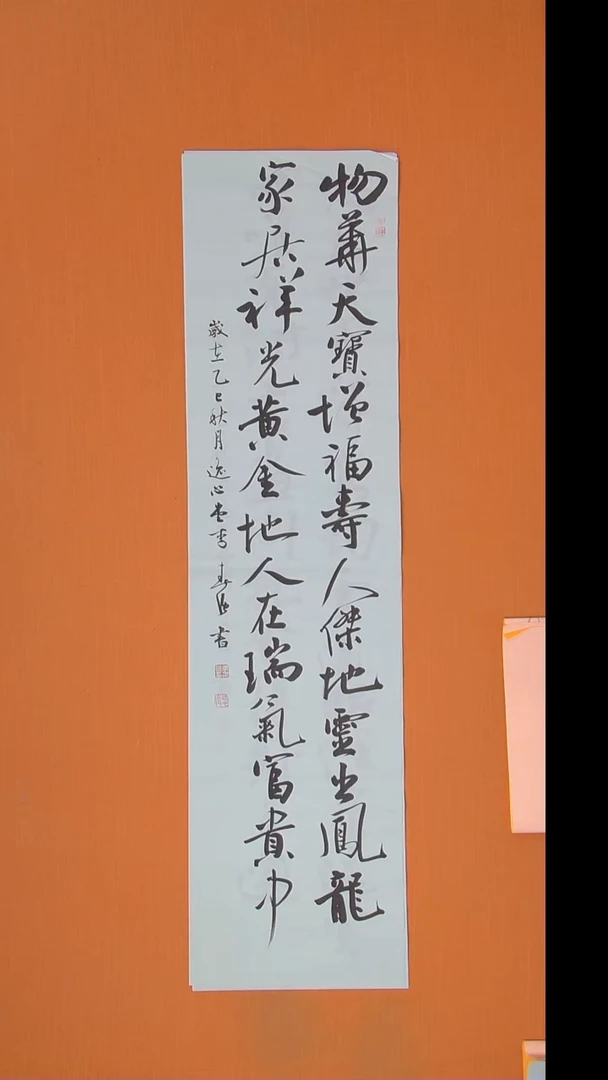 物華天寶增福壽人傑地靈出鳳龍
家居祥光黃金地人在瑞氣富貴中
歲在乙巳秋月逸心堂書